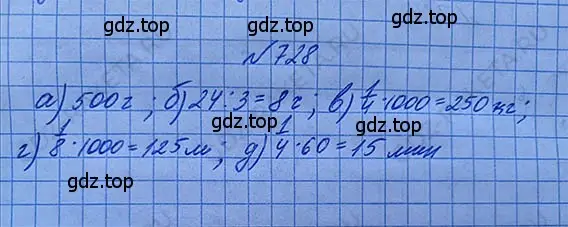 gdz.top gdz.top
№728
gdz.top gdz.top
а) 500 г ; б) 24 : 3 = 8 ч ; в) 1/4 · 1000 = 250 кг ;
gdz.top gdz.top
г) 1/8 · 1000 = 125 м ; д) 1/4 · 60 = 15 мин
gdz.top gdz.top